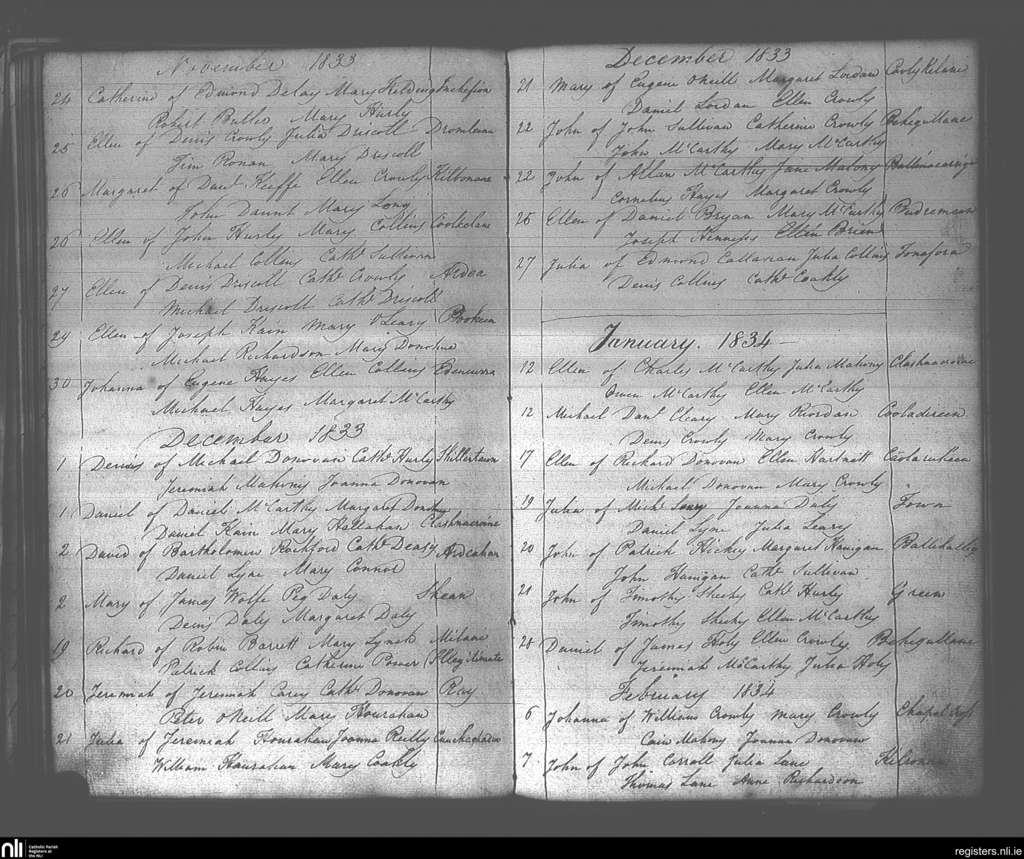 November 1833
24 Catherine of Edmond Delay Mary Helding
Robert Butler Mary Hurly
25 Ellen of Denis Crowly Julia Driscoll
Tim Ronan Mary Driscoll
26 Margaret of Danl Keeffe Ellen Crowly Kilbonane
John Daunt Mary Long
26 Ellen of John Hurly Mary Collins
Michael Collins Cathe Sullivan
27 Ellen of Denis Driscoll Cathe Crowly Ardea
Michael Driscoll Cathe Driscoll
29 Ellen of Joseph Kain Mary O'Leary
Michael Richardson Mary Donohue
30 Johanna of Eugene Hayes Ellen Collins
Michael Hayes Margaret McCarthy
December 1833
1 Denis of Michael Donovan Cathe Hurly
Jeremiah Mahony Joanna Donovan
1 Daniel of Daniel McCarthy Margaret
Daniel Kain Mary Hallahan
2 David of Bartholomew Rochford Cathe Deasy Ardcahan
Daniel Lyne Mary Connor
2 Mary of James Wolfe Peg Daly Shean
Denis Daly Margaret Daly
19 Richard of Robin Barrett Mary Lynch Milane
Patrick Collins Catherine Power Illegitimate
20 Jeremiah of Jeremiah Carey Cathe Donovan
Peter ONeill Mary Hourahan
21 Julia of Jeremiah Hourahan Joanna Reilly
William Hourahan Mary Coakly
December 1833
21 Mary of Eugene ONeill Margaret Lordan
Daniel Lordan Ellen Crowly
22 John of John Sullivan Catherine Crowly Behegullane
John McCarthy Mary McCarthy
22 John of Allan McCarthy Jane Mahony
Cornelius Hayes Margaret Crowly
26 Ellen of Daniel Bryan Mary
Joseph Ellen Brien
27 Julia of Edmond Callanan Julia Collins
Denis Collins Cathe Coakly
January. 1834
12 Ellen of Charles McCarthy Julia Mahony
Owen McCarthy Ellen McCarthy
12 Michael Danl Cleary Mary Riordan
Denis Crowly Mary Crowly
17 Ellen of Richard Donovan Ellen Hartnett
Michael Donovan Mary Crowly
19 Julia of Michl Leary Joanna Daly Town
Daniel Lyne Julia Leary
20 John of Patrick Hickey Margaret Hanigan
John Hanigan Cathe Sullivan
21 John of Timothy Sheehy Cathe Hurly Green
Timothy Sheehy Ellen McCarthy
28 Daniel of James Foly Ellen Crowly Behegullane
Jeremiah McCarthy Julia Foly
February 1834
6 Johanna of William Crowly Mary Crowly
Mahony Joanna Donovan
7 John of John Carroll Julia Lane
Thomas Lane Anne Richardson
nli
Catholic Parish
Registers at
the NLI
registers.nli.ie